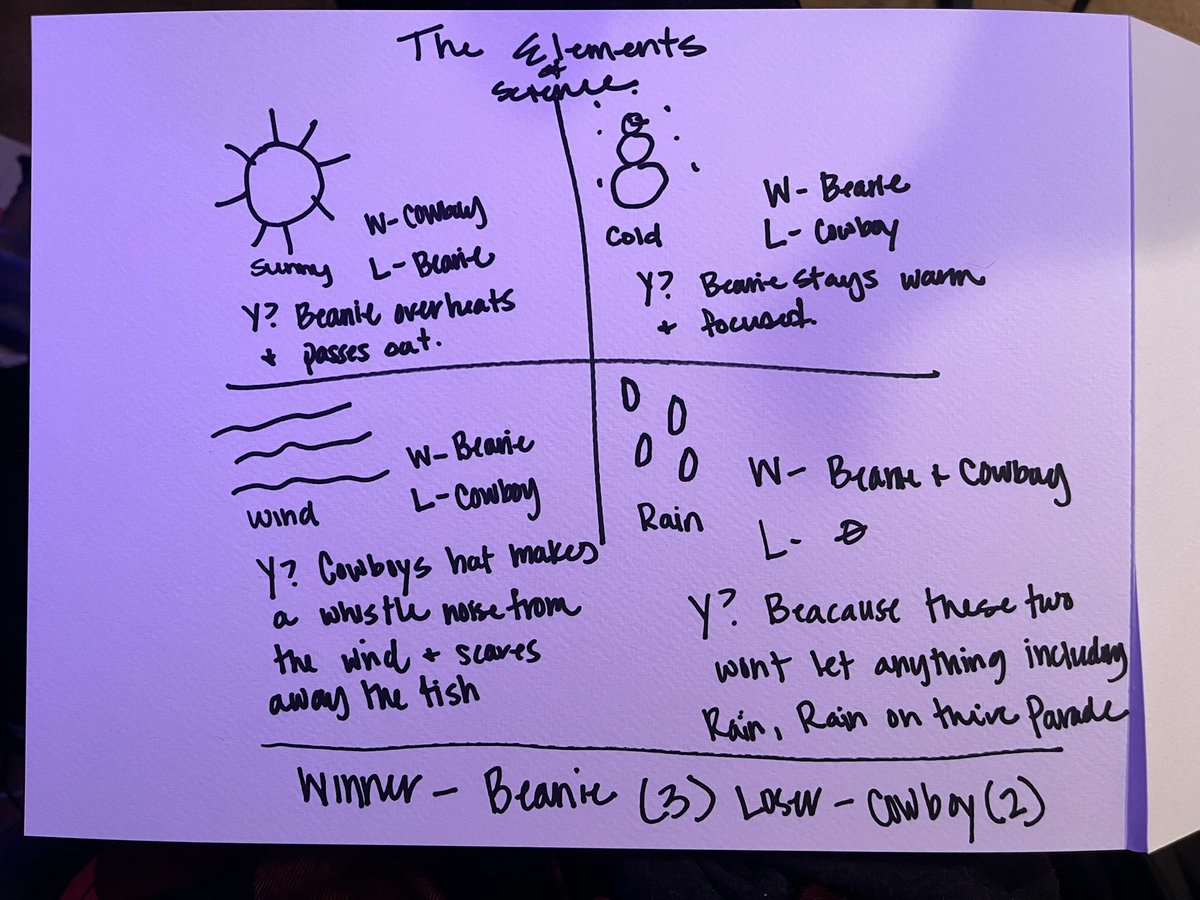 The Elements
of
science.
W- Cowboy
L- Beanie
sunny
Y? Beanie overheats
+ passes out.
W- Beanie
L- Cowboy
Cold
Y? Beanie stays warm
+ focused.
W- Beanie
L- Cowboy
wind
Y? Cowboys hat makes
a whistle noise from
the wind + scares
away the fish
W- Beanie + Cowboy
L- Ø
Rain
Y? Beacause these two
wont let anything including
Rain, Rain on thire Parade
Winner - Beanie (3) Loser - Cowboy (2)